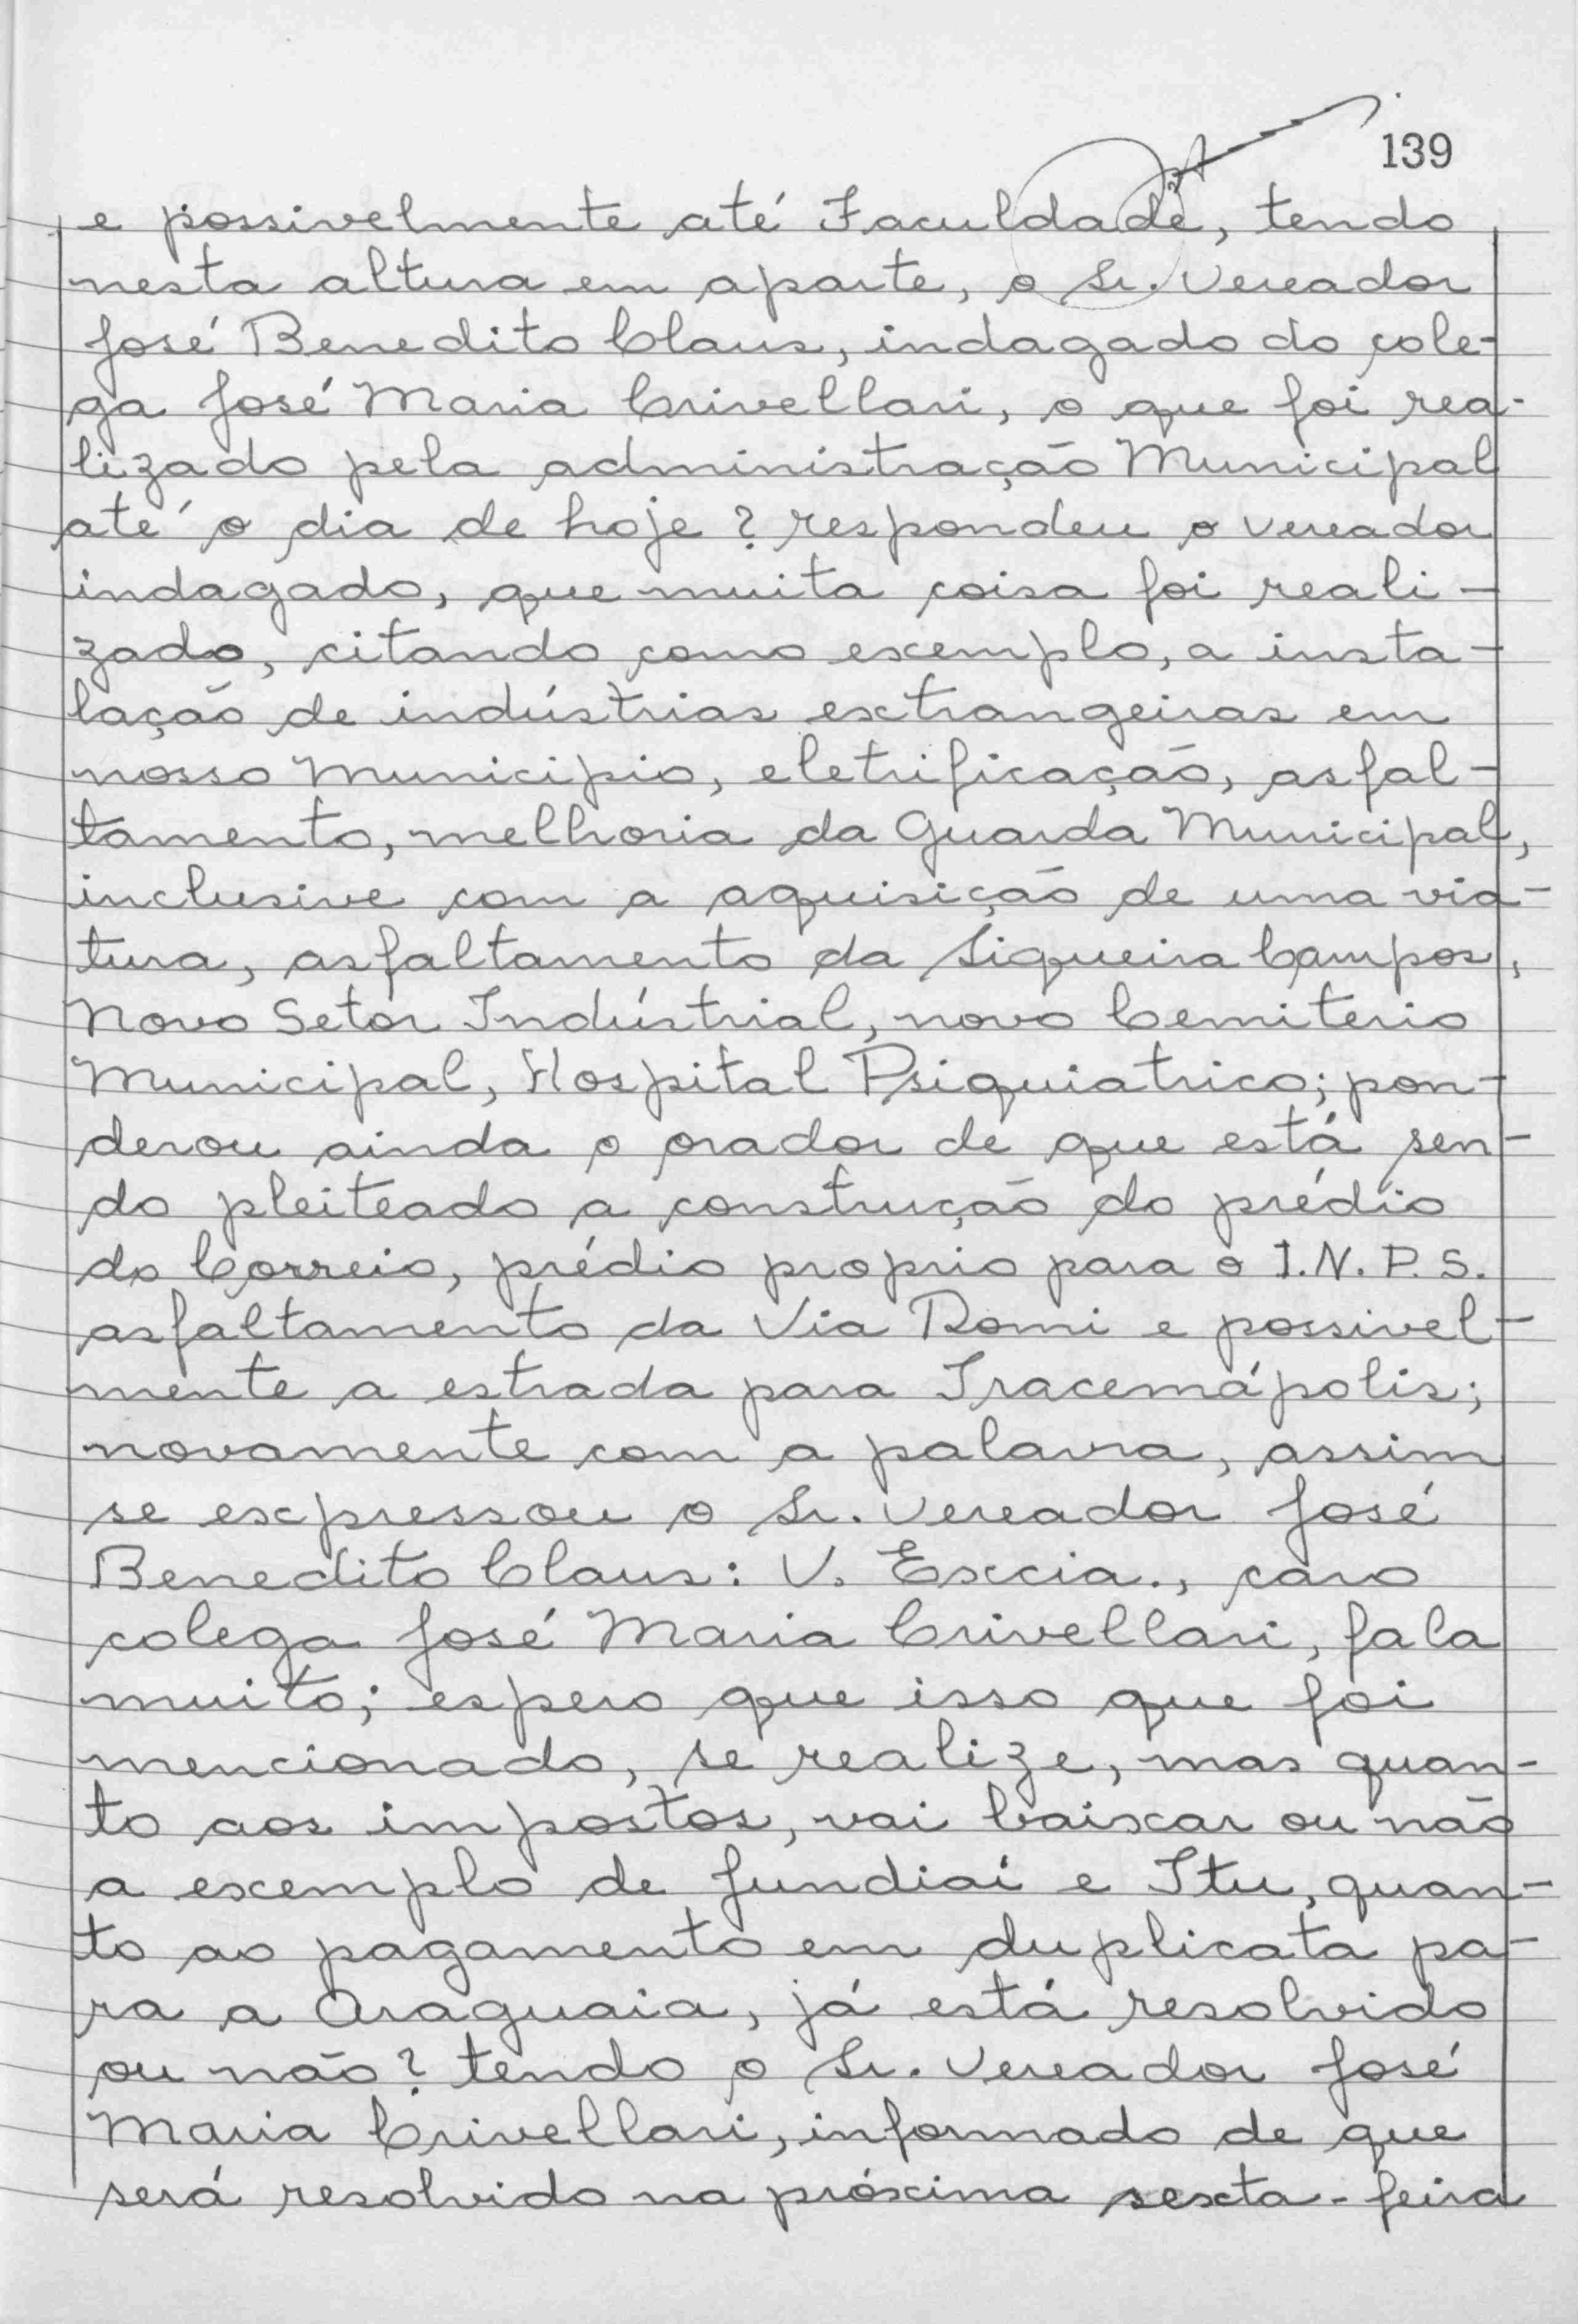 139
e possivelmente até Faculdade, tendo
nesta altura em aparte, o Sr. Vereador
José Benedito Claus, indagado do cole-
ga José Maria Crivellari, o que foi rea-
lizado pela administração Municipal
até o dia de hoje? respondeu o vereador
indagado, que muita coisa foi reali-
zado, citando como exemplo, a insta-
lação de indústrias extrangeiras em
nosso Municipio, eletrificação, asfal-
tamento, melhoria da Guarda Municipal,
inclusive com a aquisição de uma via-
tura, asfaltamento da Siqueira Campos,
Novo Setor Indústrial, novo Cemiterio
Municipal, Hospital Psiquiatrico; pon-
derou ainda o orador de que está sen-
do pleiteado a construção do prédio
do Correio, prédio proprio para o I.N.P.S.
asfaltamento da Via Romi e possivel-
mente a estrada para Iracemápolis;
novamente com a palavra, assim
se expressou o Sr. Vereador José
Benedito Claus: V. Excia., caro
colega José Maria Crivellari, fala
muito; espero que isso que foi
mencionado, se realize, mas quan-
to aos impostos, vai baixar ou não
a exemplo de Jundiaí e Itu, quan-
to ao pagamento em duplicata pa-
ra a Araguaia, já está resolvido
ou não? tendo o Sr. Vereador José
Maria Crivellari, informado de que
será resolvido na próxima sexta-feira